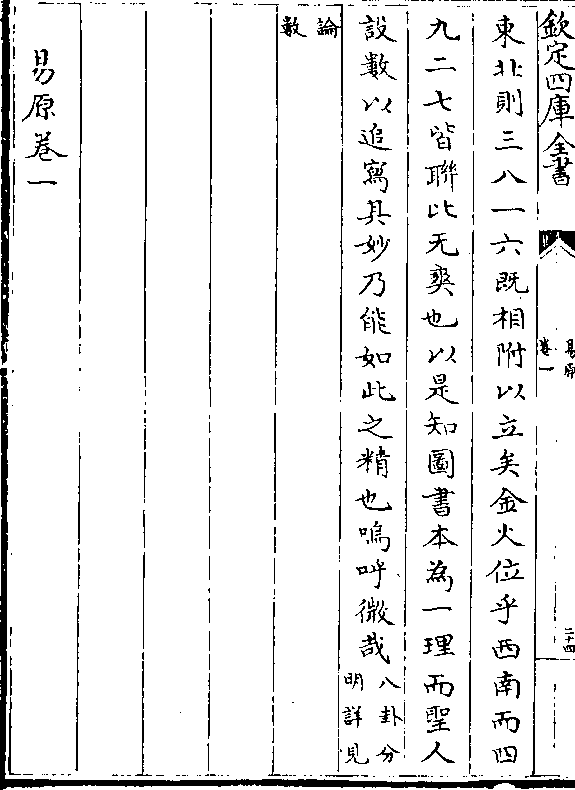 欽定四庫全書
易原
卷一
二十四
東北則三八一六既相附以立矣金火位乎西南而四
九二七皆聯比无爽也以是知圖書本為一理而聖人
設數以追寫其妙乃能如此之精也嗚呼微哉八卦分
明詳見
論
數
易原卷一